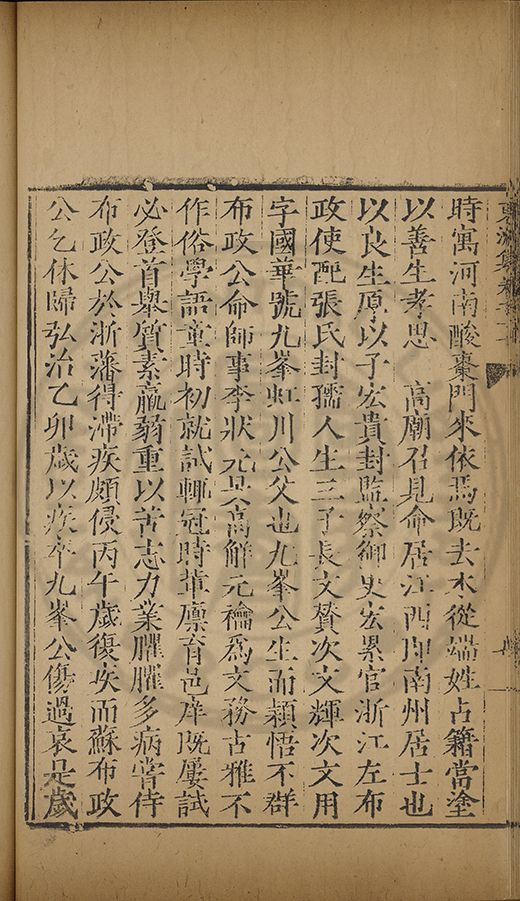 時寓河南酸棗門來依焉既去木從端姓占籍當塗
以善生孝思　高廟召見命居江西即南州居士也
以良生原以子宏貴封監察御史宏累官浙江左布
政使配張氏封孺人生三子長文贊次文輝次文用
字國華號九峯虹川公父也九峯公生而穎悟不群
布政公命師事李狀元旻高解元禴爲文務古雅不
作俗學語童時初就試輒冠時輩廪育邑庠既屢試
必登首舉質素羸弱重以苦志力業臞臞多病嘗侍
布政公於浙藩得滯疾頗侵丙午歲復疾而蘇布政
公乞休歸弘治乙卯歲以疾卒九峯公傷過哀是歲